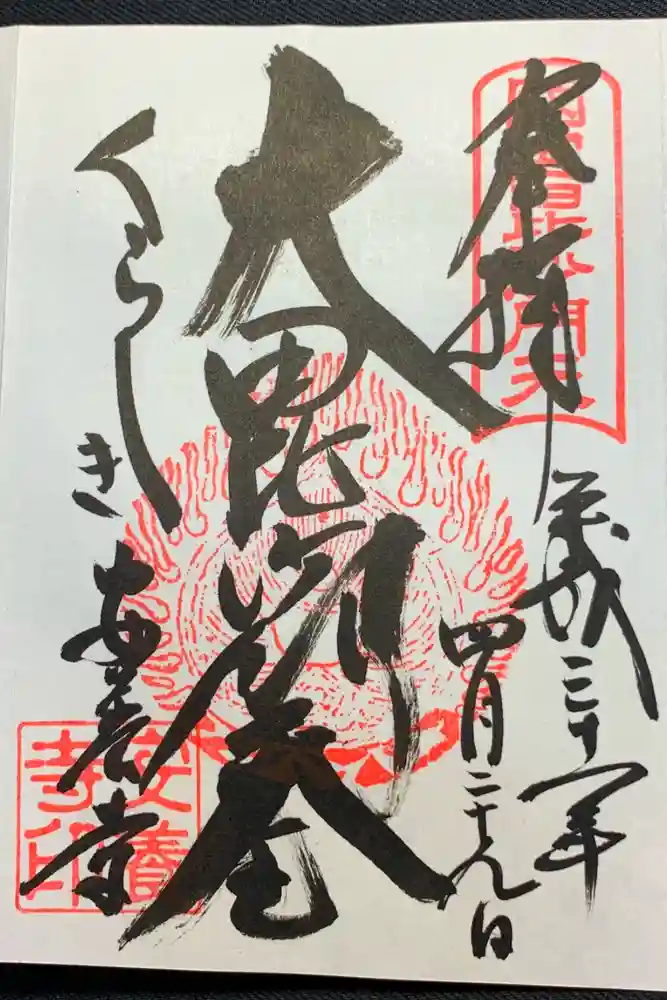 奉拝
毘沙門天
平成三十年
四月二十九日
大毘沙門
くらしき
安養寺
安養寺印